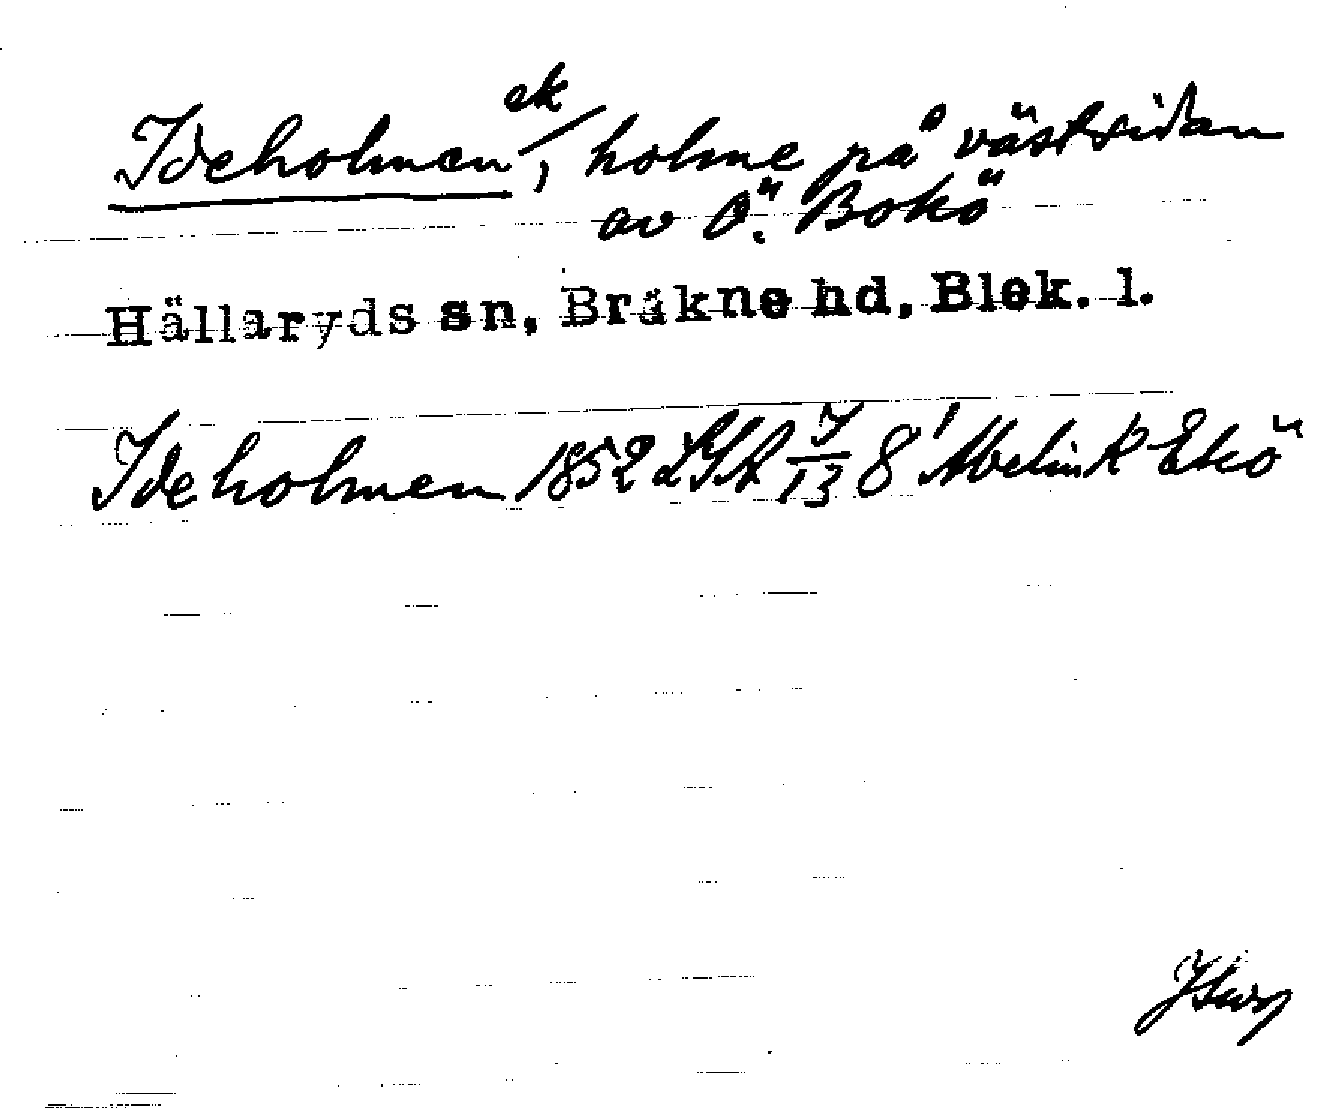 Ideholmen ek/, holme på västsidan
av Ö. Bokö
Hällaryds sn, Bräkne hd, Blek. l.
Ideholmen 1852 LSA 7/13 8 Abelin K Ekö